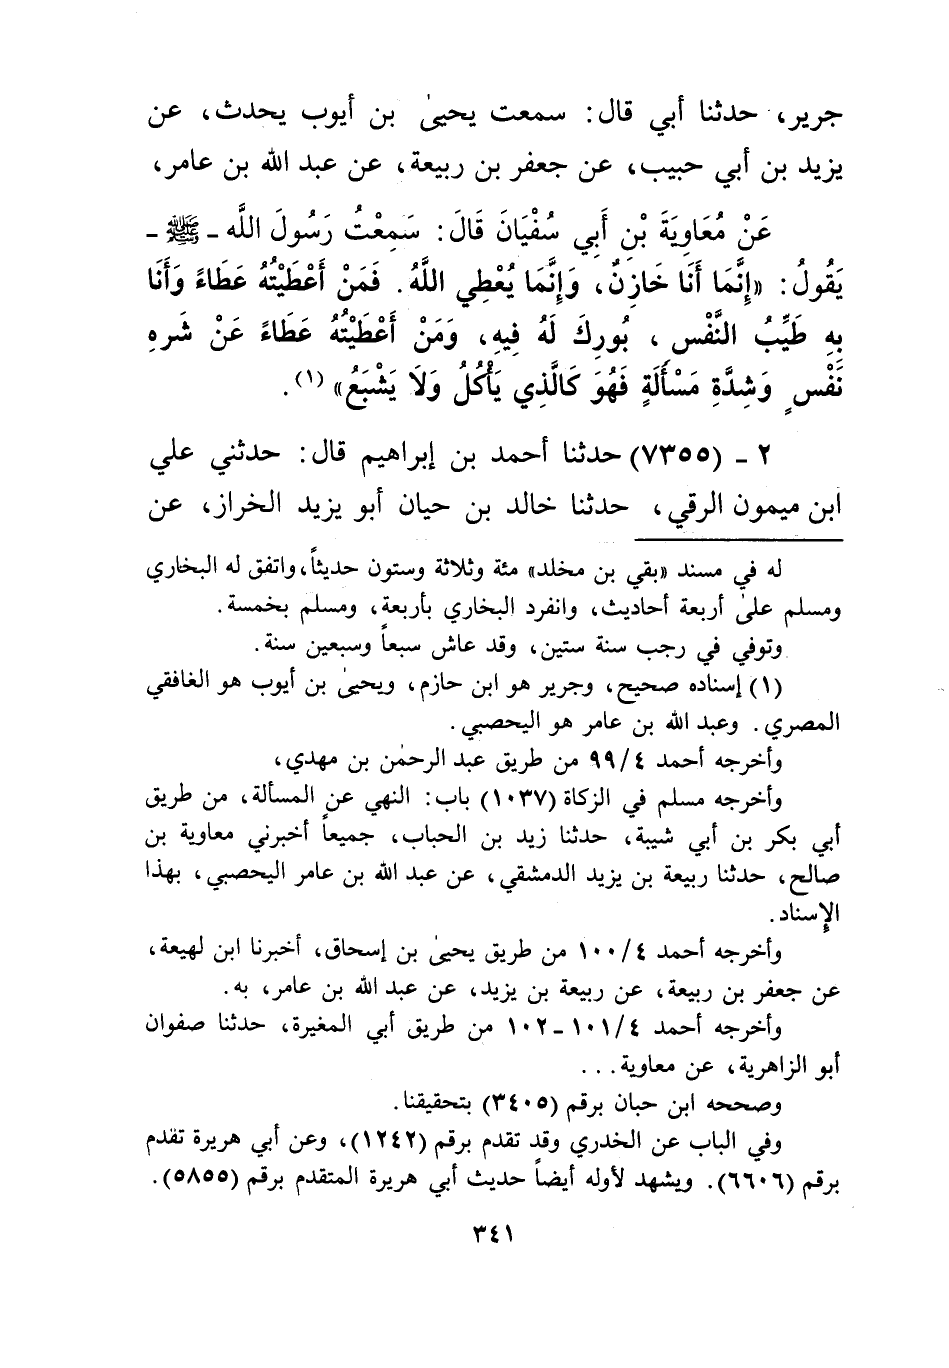 جرير، حدثنا أبي قال: سمعت يحيىٰ بن أيوب يحدث، عن
يزيد بن أبي حبيب، عن جعفر بن ربيعة، عن عبد الله بن عامر،
عَنْ مُعَاوِيَةَ بْنِ أَبِي سُفْيَانَ قَالَ: سَمِعْتُ رَسُولَ اللَّه ـ ﷺ ـ
يَقُولُ: «إِنَّمَا أَنَا خَازِنٌ، وَإِنَّمَا يُعْطِي اللَّهُ. فَمَنْ أَعْطَيْتُهُ عَطَاءً وَأَنَا
بِهِ طَيِّبُ النَّفْسِ، بُورِكَ لَهُ فِيهِ، وَمَنْ أَعْطَيْتُهُ عَطَاءً عَنْ شَرِهِ
نَفْسٍ وَشِدَّةِ مَسْأَلَةٍ فَهُوَ كَالَّذِي يَأْكُلُ وَلَا يَشْبَعُ» (١).
٢ ـ (٧٣٥٥) حدثنا أحمد بن إبراهيم قال: حدثني علي
ابن ميمون الرقي، حدثنا خالد بن حيان أبو يزيد الخراز، عن
له في مسند «بقي بن مخلد» مئة وثلاثة وستون حديثاً، واتفق له البخاري
ومسلم علىٰ أربعة أحاديث، وانفرد البخاري بأربعة، ومسلم بخمسة.
وتوفي في رجب سنة ستين، وقد عاش سبعاً وسبعين سنة.
(١) إسناده صحيح، وجرير هو ابن حازم، ويحيىٰ بن أيوب هو الغافقي
المصري. وعبد الله بن عامر هو اليحصبي.
وأخرجه أحمد ٩٩/٤ من طريق عبد الرحمٰن بن مهدي،
وأخرجه مسلم في الزكاة (١٠٣٧) باب: النهي عن المسألة، من طريق
أبي بكر بن أبي شيبة، حدثنا زيد بن الحباب، جميعاً أخبرني معاوية بن
صالح، حدثنا ربيعة بن يزيد الدمشقي، عن عبد الله بن عامر اليحصبي، بهذا
الإسناد.
وأخرجه أحمد ١٠٠/٤ من طريق يحيىٰ بن إسحاق، أخبرنا ابن لهيعة،
عن جعفر بن ربيعة، عن ربيعة بن يزيد، عن عبد الله بن عامر، به.
وأخرجه أحمد ١٠١/٤ ـ ١٠٢ من طريق أبي المغيرة، حدثنا صفوان
أبو الزاهرية، عن معاوية...
وصححه ابن حبان برقم (٣٤٠٥) بتحقيقنا.
وفي الباب عن الخدري وقد تقدم برقم (١٢٤٢)، وعن أبي هريرة تقدم
برقم (٦٦٠٦). ويشهد لأوله أيضاً حديث أبي هريرة المتقدم برقم (٥٨٥٥).
٣٤١